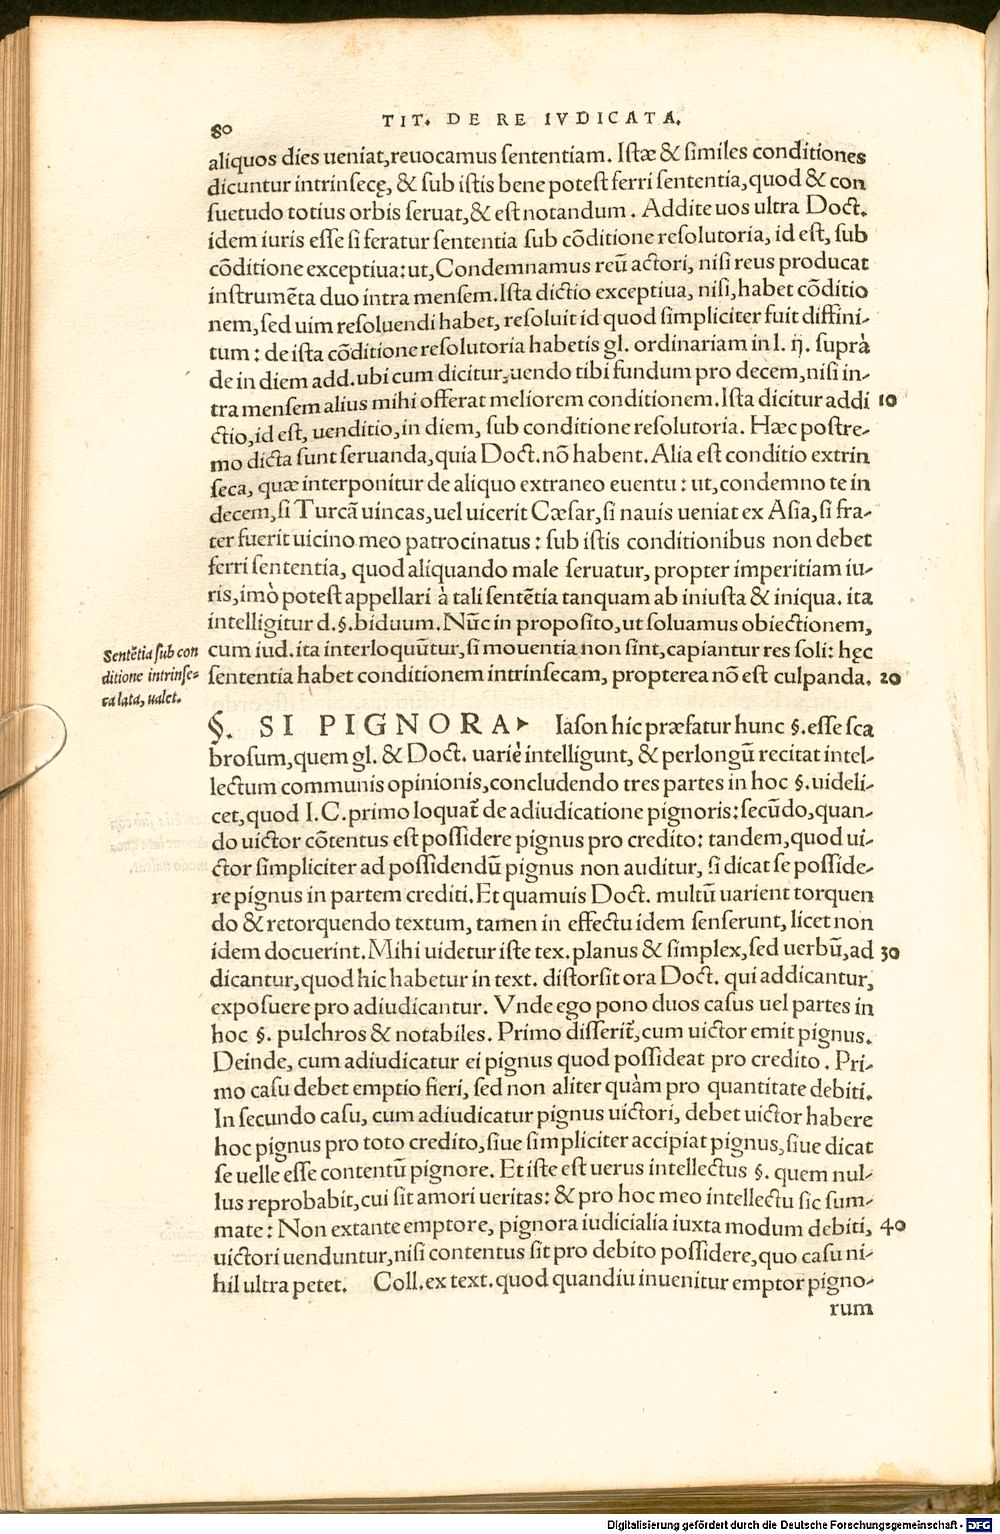 80
TIT. DE RE IVDICATA.
aliquos dies ueniat,reuocamus sententiam. Istæ & similes conditiones
dicuntur intrinsecę, & sub istis bene potest ferri sententia,quod & con
suetudo totius orbis seruat,& est notandum. Addite uos ultra Doct.
idem iuris esse si feratur sententia sub cõditione resolutoria, id est, sub
cõditione exceptiua:ut,Condemnamus reũ actori, nisi reus producat
instrumẽta duo intra mensem.Ista dictio exceptiua, nisi,habet cõditio
nem,sed uim resoluendi habet, resoluit id quod simpliciter fuit diffini-
tum: de ista cõditione resolutoria habetis gl. ordinariam in l. ij. suprà
de in diem add.ubi cum dicitur,uendo tibi fundum pro decem,nisi in-
tra mensem alius mihi offerat meliorem conditionem.Ista dicitur addi 10
ctio,id est, uenditio,in diem, sub conditione resolutoria. Hæc postre-
mo dicta sunt seruanda,quia Doct.nõ habent.Alia est conditio extrin
seca, quæ interponitur de aliquo extraneo euentu: ut,condemno te in
decem,si Turcã uincas,uel uicerit Cæsar,si nauis ueniat ex Asia,si fra-
ter fuerit uicino meo patrocinatus: sub istis conditionibus non debet
ferri sententia, quod aliquando male seruatur, propter imperitiam iu-
ris,imò potest appellari à tali sentẽtia tanquam ab iniusta & iniqua. ita
intelligitur d.§.biduum.Nũc in proposito,ut soluamus obiectionem,
cum iud.ita interloquũtur,si mouentia non sint,capiantur res soli: hęc
sententia habet conditionem intrinsecam, propterea nõ est culpanda. 20
Sentẽtia sub con
ditione intrinse-
ca lata, ualet.
§. SI PIGNORA▸ Iason hic præfatur hunc §.esse sca
brosum,quem gl. & Doct. uariè intelligunt, & perlongũ recitat intel-
lectum communis opinionis,concludendo tres partes in hoc §.uideli-
cet,quod I.C.primo loquat̃ de adiudicatione pignoris:secũdo,quan-
do uictor cõtentus est possidere pignus pro credito: tandem,quod ui-
ctor simpliciter ad possidendũ pignus non auditur, si dicat se posside-
re pignus in partem crediti.Et quamuis Doct. multũ uarient torquen
do & retorquendo textum, tamen in effectu idem senserunt, licet non
idem docuerint.Mihi uidetur iste tex.planus & simplex,sed uerbũ,ad 30
dicantur,quod hic habetur in text. distorsit ora Doct. qui addicantur,
exposuere pro adiudicantur. Vnde ego pono duos casus uel partes in
hoc §. pulchros & notabiles. Primo disserit̃,cum uictor emit pignus.
Deinde, cum adiudicatur ei pignus quod possideat pro credito. Pri-
mo casu debet emptio fieri, sed non aliter quàm pro quantitate debiti.
In secundo casu, cum adiudicatur pignus uictori, debet uictor habere
hoc pignus pro toto credito,siue simpliciter accipiat pignus,siue dicat
se uelle esse contentũ pignore. Et iste est uerus intellectus §. quem nul-
lus reprobabit,cui sit amori ueritas: & pro hoc meo intellectu sic sum-
mate: Non extante emptore, pignora iudicialia iuxta modum debiti, 40
uictori uenduntur,nisi contentus sit pro debito possidere,quo casu ni-
hil ultra petet. Coll.ex text.quod quandiu inuenitur emptor pigno-
rum
Digitalisierung gefördert durch die Deutsche Forschungsgemeinschaft - DFG